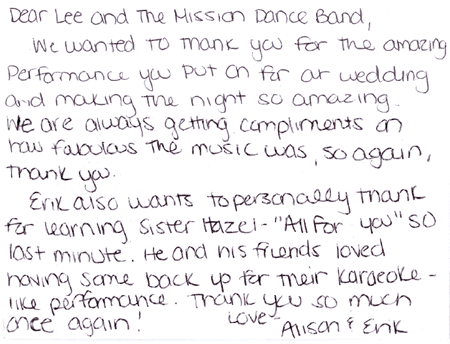 Dear Lee and The Mission Dance Band,
We wanted to thank you for the amazing
performance you put on for our wedding
and making the night so amazing.
We are always getting compliments on
how fabulous the music was, so again,
thank you.
Erik also wants to personally thank
for learning Sister Hazel - "All for you" so
last minute. He and his friends loved
having some back up for their karaoke -
like performance. Thank you so much
once again!
Love -
Alison & Erik